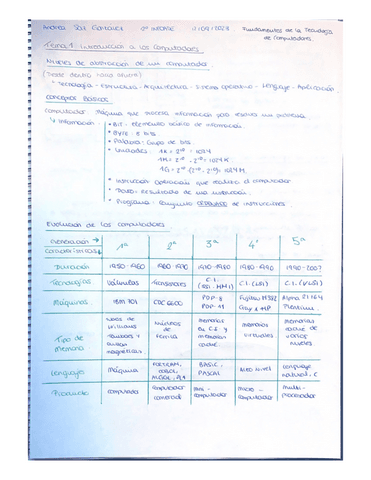 Tema 1: Introducción a los computadores
Niveles de abstracción de un computador
(Desde dentro hacia afuera)
* Tecnología - Estructura - Arquitectura - Sistema operativo - Lenguaje - Aplicación.
Conceptos Básicos
Computador: Máquina que procesa información para resolver un problema.
Información:
* Bit - Elemento básico de información
* Byte - 8 bits
* Palabra: Grupo de bits.
* Unidades: 1K = 2¹⁰ = 1024
* Instrucción: Operación que realiza el computador
* Dato: Resultado de una instrucción.
* Programa: Conjunto ORDENADO de instrucciones.
Evolución de los computadores
Generación →
Características ↓
1ª 2ª 3ª 4ª 5ª
Duración 1950-1960 1960-1970 1970-1980 1980-1990 1990-200?
Tecnologías Válvulas Transistores C.I. (SSI-MSI) C.I. (LSI) C.I. (VLSI)
Máquinas IBM 701 CDC 6600 PDP-8 PDP-11 Fujitsu Pentium
Tipo de Memoria Tubos de Williams Tambores y cintas magnéticas Núcleos de ferrita Memorias en C.I. y memorias caché Memorias virtuales Memorias caché de varios niveles
Lenguajes Máquina FORTRAN, COBOL, ALGOL, PL1 BASIC, PASCAL Alto nivel Lenguaje natural, C
Producto Computador Computador comercial Mini-computador Micro-computador Multi-procesador